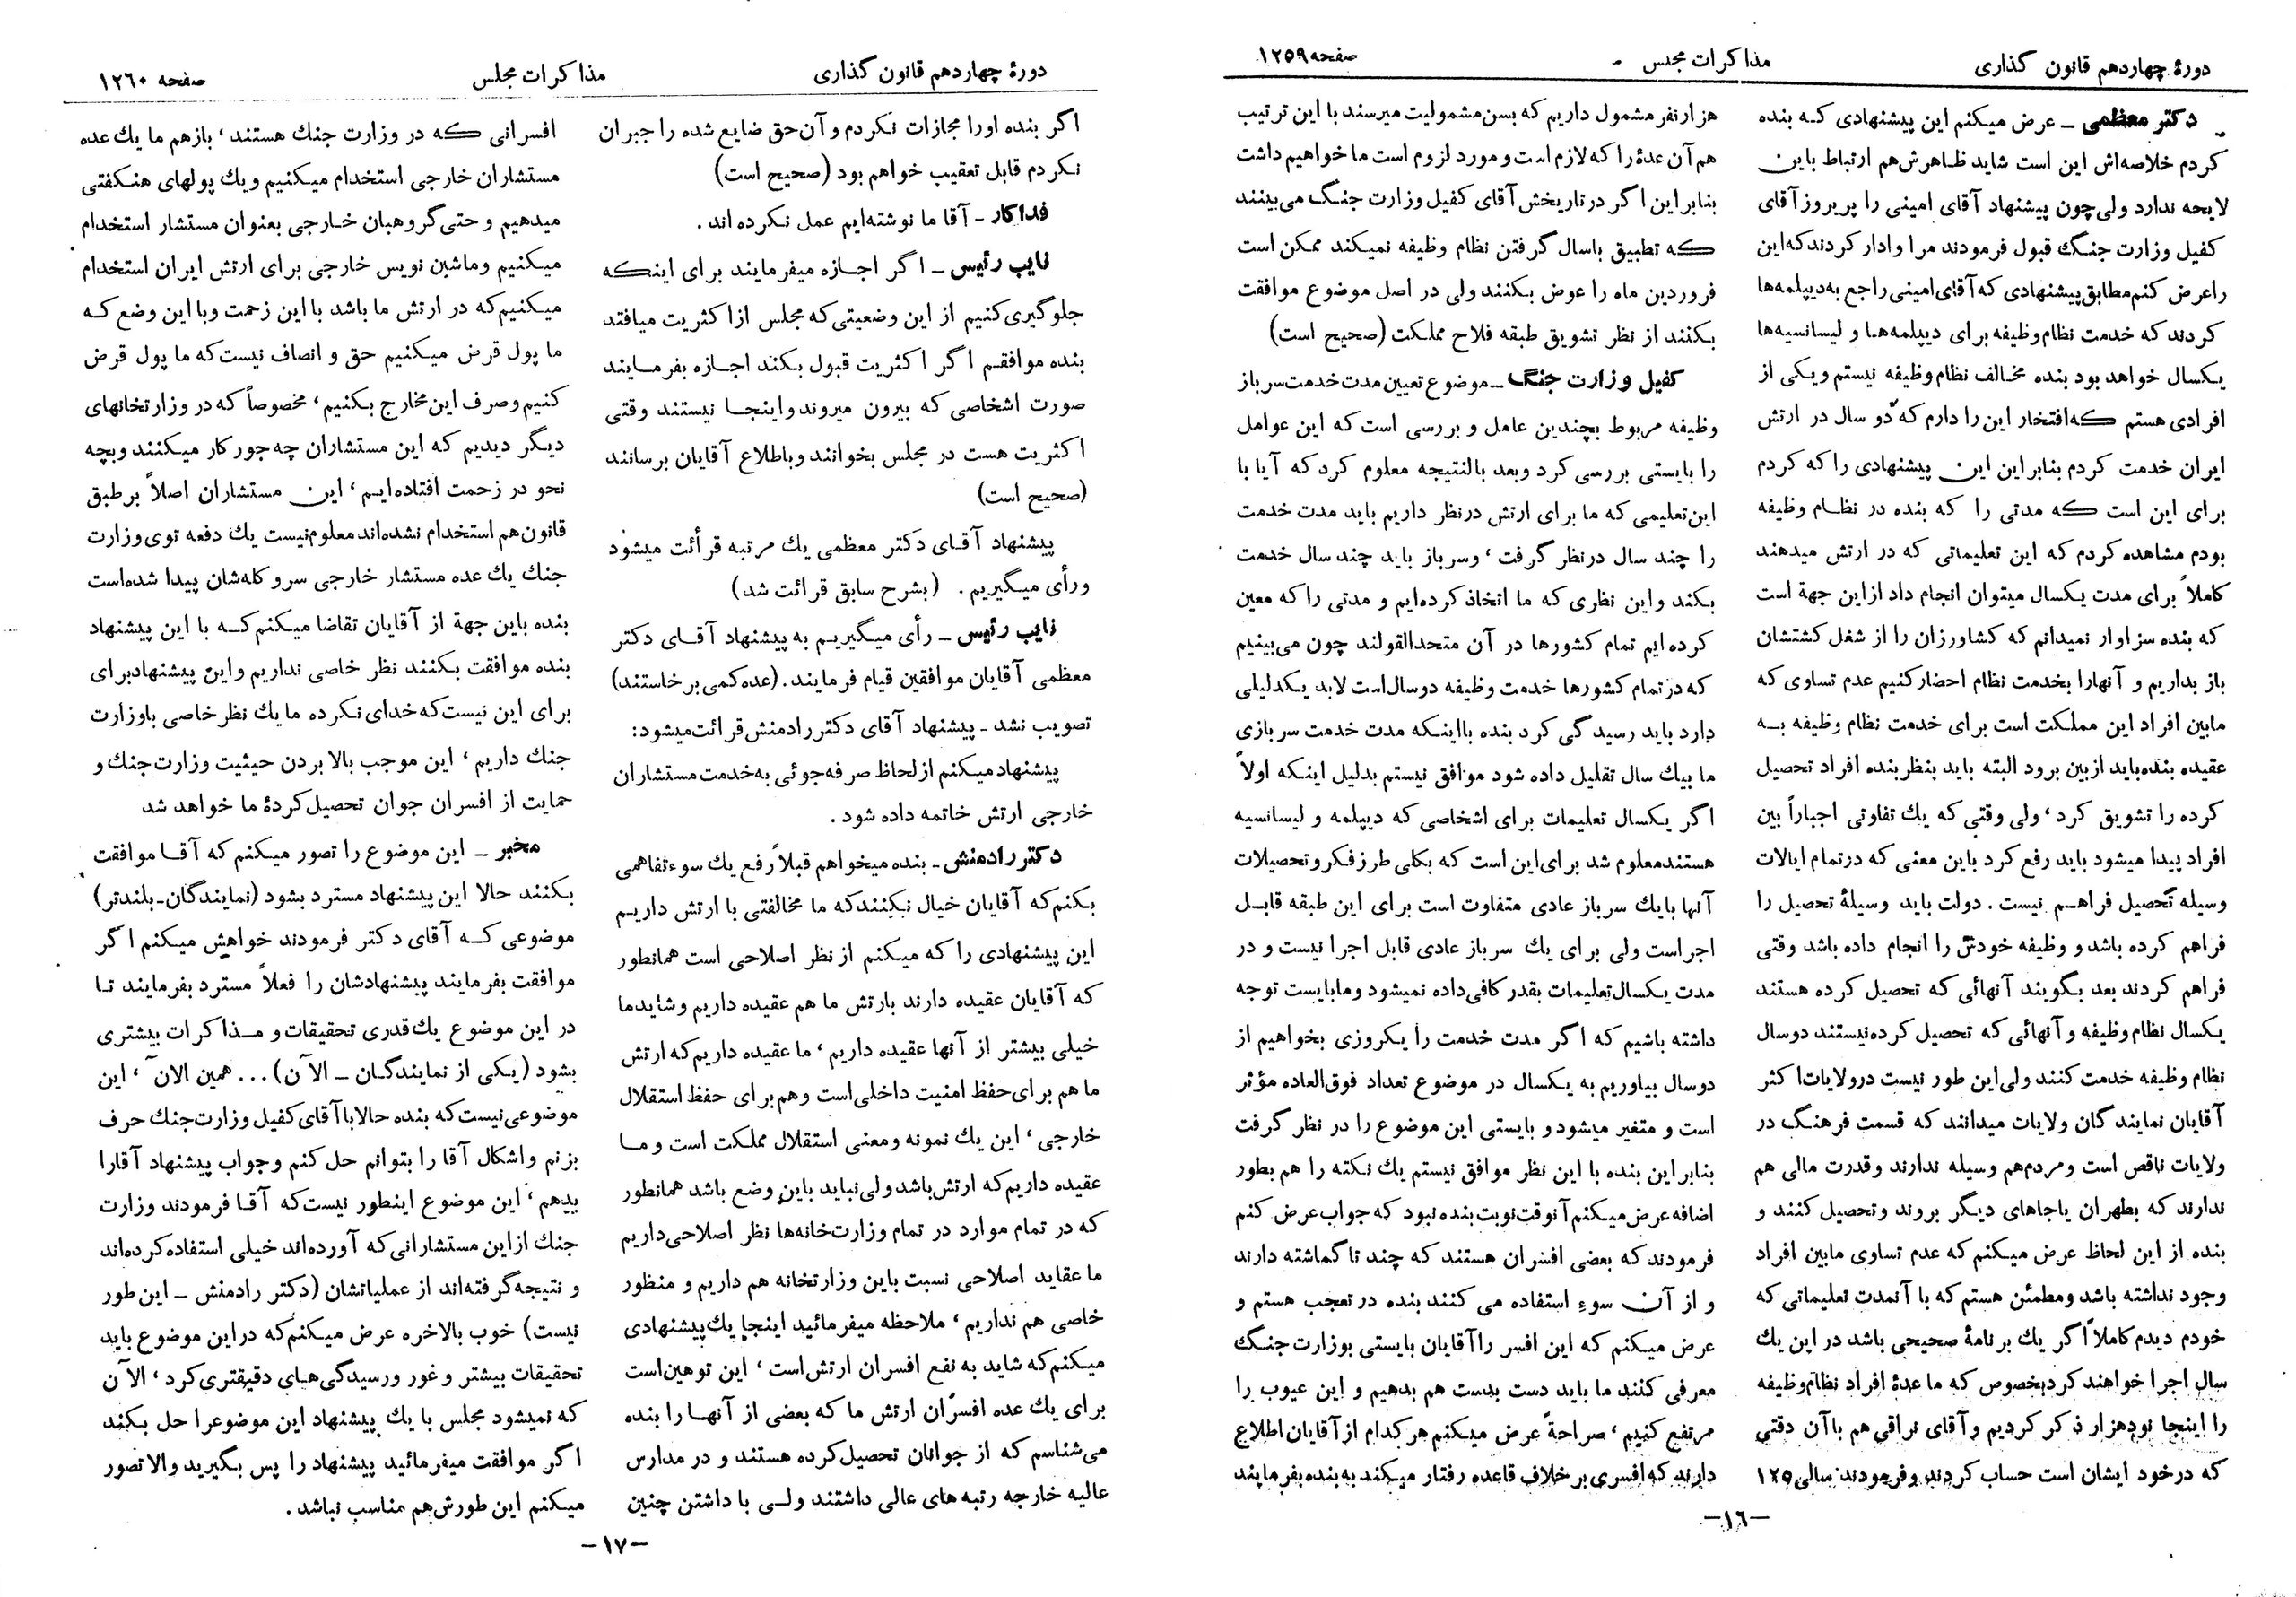 دورهٔ چهاردهم قانون گذاری
مذاکرات مجلس
صفحه ۱۲۵۹
دکتر معظمی ــ عرض میکنم این پیشنهادی که بنده
کردم خلاصه‌اش این است شاید ظاهرش هم ارتباط باین
لایحه ندارد ولی چون پیشنهاد آقای امینی را پریروز آقای
کفیل وزارت جنگ قبول فرمودند مرا وادار کردند که این
را عرض کنم مطابق پیشنهادی که آقای امینی راجع به دیپلمه‌ها
کردند که خدمت نظام وظیفه برای دیپلمه‌ها و لیسانسیه‌ها
یکسال خواهد بود بنده مخالف نظام وظیفه نیستم و یکی از
افرادی هستم که افتخار این را دارم که دو سال در ارتش
ایران خدمت کردم بنابراین این پیشنهادی را که کردم
برای این است که مدتی را که بنده در نظام وظیفه
بودم مشاهده کردم که این تعلیماتی که در ارتش میدهند
کاملاً برای مدت یکسال میتوان انجام داد از این جهة است
که بنده سزاوار نمیدانم که کشاورزان را از شغل کشتشان
باز بداریم و آنها را بخدمت نظام احضار کنیم عدم تساوی که
مابین افراد این مملکت است برای خدمت نظام وظیفه به
عقیده بنده باید از بین برود البته باید بنظر بنده افراد تحصیل
کرده را تشویق کرد، ولی وقتی که یك تفاوتی اجباراً بین
افراد پیدا میشود باید رفع کرد باین معنی که در تمام ایالات
وسیله تحصیل فراهم نیست . دولت باید وسیلهٔ تحصیل را
فراهم کرده باشد و وظیفه خودش را انجام داده باشد وقتی
فراهم کردند بعد بگویند آنهائی که تحصیل کرده هستند
یکسال نظام وظیفه و آنهائی که تحصیل کرده نیستند دو سال
نظام وظیفه خدمت کنند ولی این طور نیست در ولایات اکثر
آقایان نمایندگان ولایات میدانند که قسمت فرهنگ در
ولایات ناقص است و مردم هم وسیله ندارند و قدرت مالی هم
ندارند که بطهران یا جاهای دیگر بروند و تحصیل کنند و
بنده از این لحاظ عرض میکنم که عدم تساوی مابین افراد
وجود نداشته باشد و مطمئن هستم که با آنمدت تعلیماتی که
خودم دیدم کاملاً اگر یك برنامهٔ صحیحی باشد در این یك
سال اجرا خواهند کرد بخصوص که ما عدهٔ افراد نظام وظیفه
را اینجا نود هزار ذکر کردیم و آقای نراقی هم با آن دقتی
که در خود ایشان است حساب کردند و فرمودند سالی ۱۲۵
هزار نفر مشمول داریم که بسن مشمولیت میرسند با این ترتیب
هم آن عدهٔ را که لازم است و مورد لزوم است ما خواهیم داشت
بنابراین اگر در تاریخش آقای کفیل وزارت جنگ می‌بینند
که تطبیق باسال گرفتن نظام وظیفه نمیکند ممکن است
فروردین ماه را عوض بکنند ولی در اصل موضوع موافقت
بکنند از نظر تشویق طبقه فلاح مملکت (صحیح است)
کفیل وزارت جنگ ــ موضوع تعیین مدت خدمت سرباز
وظیفه مربوط بچندین عامل و بررسی است که این عوامل
را بایستی بررسی کرد و بعد بالنتیجه معلوم کرد که آیا با
این تعلیمی که ما برای ارتش در نظر داریم باید مدت خدمت
را چند سال در نظر گرفت، و سرباز باید چند سال خدمت
بکند و این نظری که ما اتخاذ کرده‌ایم و مدتی را که معین
کرده ایم تمام کشورها در آن متحدالقولند چون می‌بینیم
که در تمام کشورها خدمت وظیفه دو سال است لابد یکدلیلی
دارد باید رسیدگی کرد بنده با اینکه مدت خدمت سربازی
ما بیك سال تقلیل داده شود موافق نیستم بدلیل اینکه اولاً
اگر یکسال تعلیمات برای اشخاصی که دیپلمه و لیسانسیه
هستند معلوم شد برای این است که بکلی طرز فکر و تحصیلات
آنها با یك سرباز عادی متفاوت است برای این طبقه قابل
اجر است ولی برای یك سرباز عادی قابل اجرا نیست و در
مدت یکسال تعلیمات بقدر کافی داده نمیشود و ما بایست توجه
داشته باشیم که اگر مدت خدمت را یکروزی بخواهیم از
دو سال بیاوریم به یکسال در موضوع تعداد فوق‌العاده مؤثر
است و متغیر میشود و بایستی این موضوع را در نظر گرفت
بنابراین بنده با این نظر موافق نیستم یك نکته را هم بطور
اضافه عرض میکنم آنوقت نوبت بنده نبود که جواب عرض کنم
فرمودند که بعضی افسران هستند که چند تا گماشته دارند
و از آن سوء استفاده می کنند بنده در تعجب هستم و
عرض میکنم که این افسر را آقایان بایستی بوزارت جنگ
معرفی کنند ما باید دست بدست هم بدهیم و این عیوب را
مرتفع کنیم، صراحةً عرض میکنم هر کدام از آقایان اطلاع
دارند که افسری برخلاف قاعده رفتار میکند به بنده بفرمایند
ــ۱٦ــ
دورهٔ چهاردهم قانون گذاری
مذاکرات مجلس
صفحه ۱۲٦۰
اگر بنده او را مجازات نکردم و آن حق ضایع شده را جبران
نکردم قابل تعقیب خواهم بود (صحیح است)
فداکار ــ آقا ما نوشته‌ایم عمل نکرده اند .
نایب رئیس ــ اگر اجازه میفرمایند برای اینکه
جلوگیری کنیم از این وضعیتی که مجلس از اکثریت میافتد
بنده موافقم اگر اکثریت قبول بکند اجازه بفرمایند
صورت اشخاصی که بیرون میروند و اینجا نیستند وقتی
اکثریت هست در مجلس بخوانند و باطلاع آقایان برسانند
(صحیح است)
پیشنهاد آقای دکتر معظمی یك مرتبه قرأئت میشود
و رأی میگیریم . (بشرح سابق قرائت شد)
نایب رئیس ــ رأی میگیریم به پیشنهاد آقای دکتر
معظمی آقایان موافقین قیام فرمایند. (عده کمی برخاستند)
تصویب نشد ــ پیشنهاد آقای دکتر رادمنش قرائت میشود:
پیشنهاد میکنم از لحاظ صرفه جوئی به خدمت مستشاران
خارجی ارتش خاتمه داده شود .
دکتر رادمنش ــ بنده میخواهم قبلاً رفع یك سوءتفاهمی
بکنم که آقایان خیال نکنند که ما مخالفتی با ارتش داریم
این پیشنهادی را که میکنم از نظر اصلاحی است همانطور
که آقایان عقیده دارند بارتش ما هم عقیده داریم و شاید ما
خیلی بیشتر از آنها عقیده داریم، ما عقیده داریم که ارتش
ما هم برای حفظ امنیت داخلی است و هم برای حفظ استقلال
خارجی، این یك نمونه و معنی استقلال مملکت است و ما
عقیده داریم که ارتش باشد ولی نباید باین وضع باشد همانطور
که در تمام موارد در تمام وزارت‌خانه‌ها نظر اصلاحی داریم
ما عقاید اصلاحی نسبت باین وزارتخانه هم داریم و منظور
خاصی هم نداریم، ملاحظه میفرمائید اینجا یك پیشنهادی
میکنم که شاید به نفع افسران ارتش است، این توهین است
برای یك عده افسران ارتش ما که بعضی از آنها را بنده
می‌شناسم که از جوانان تحصیل کرده هستند و در مدارس
عالیه خارجه رتبه های عالی داشتند ولی با داشتن چنین
افسرانی که در وزارت جنك هستند، بازهم ما یك عده
مستشاران خارجی استخدام میکنیم و یك پولهای هنگفتی
میدهیم و حتی گروهبان خارجی بعنوان مستشار استخدام
میکنیم و ماشین نویس خارجی برای ارتش ایران استخدام
میکنیم که در ارتش ما باشد با این زحمت و با این وضع که
ما پول قرض میکنیم حق و انصاف نیست که ما پول قرض
کنیم و صرف این مخارج بکنیم، مخصوصاً که در وزارتخانهای
دیگر دیدیم که این مستشاران چه جور کار میکنند و بچه
نحو در زحمت افتاده‌ایم، این مستشاران اصلاً برطبق
قانون هم استخدام نشده‌اند معلوم نیست یك دفعه توی وزارت
جنك یك عده مستشار خارجی سر و کله‌شان پیدا شده است
بنده باین جهة از آقایان تقاضا میکنم که با این پیشنهاد
بنده موافقت بکنند نظر خاصی نداریم و این پیشنهاد برای
برای این نیست که خدای نکرده ما یك نظر خاصی با وزارت
جنك داریم، این موجب بالا بردن حیثیت وزارت جنك و
حمایت از افسران جوان تحصیل کردهٔ ما خواهد شد
مخبر ــ این موضوع را تصور میکنم که آقا موافقت
بکنند حالا این پیشنهاد مسترد بشود (نمایندگان ــ بلندتر)
موضوعی که آقای دکتر فرمودند خواهش میکنم اگر
موافقت بفرمایند پیشنهادشان را فعلاً مسترد بفرمایند تا
در این موضوع یك قدری تحقیقات و مذاکرات بیشتری
بشود (یکی از نمایندگان ــ الآن) ... همین الان، این
موضوعی نیست که بنده حالا با آقای کفیل وزارت جنك حرف
بزنم و اشکال آقا را بتوانم حل کنم و جواب پیشنهاد آقا را
بدهم، این موضوع اینطور نیست که آقا فرمودند وزارت
جنك از این مستشارانی که آورده‌اند خیلی استفاده کرده‌اند
و نتیجه گرفته‌اند از عملیاتشان (دکتر رادمنش ــ این طور
نیست) خوب بالاخره عرض میکنم که در این موضوع باید
تحقیقات بیشتر و غور و رسیدگی های دقیقتری کرد، الآن
که نمیشود مجلس با یك پیشنهاد این موضوع را حل بکند
اگر موافقت میفرمائید پیشنهاد را پس بگیرید والا تصور
میکنم این طورش هم مناسب نباشد .
ــ۱۷ــ